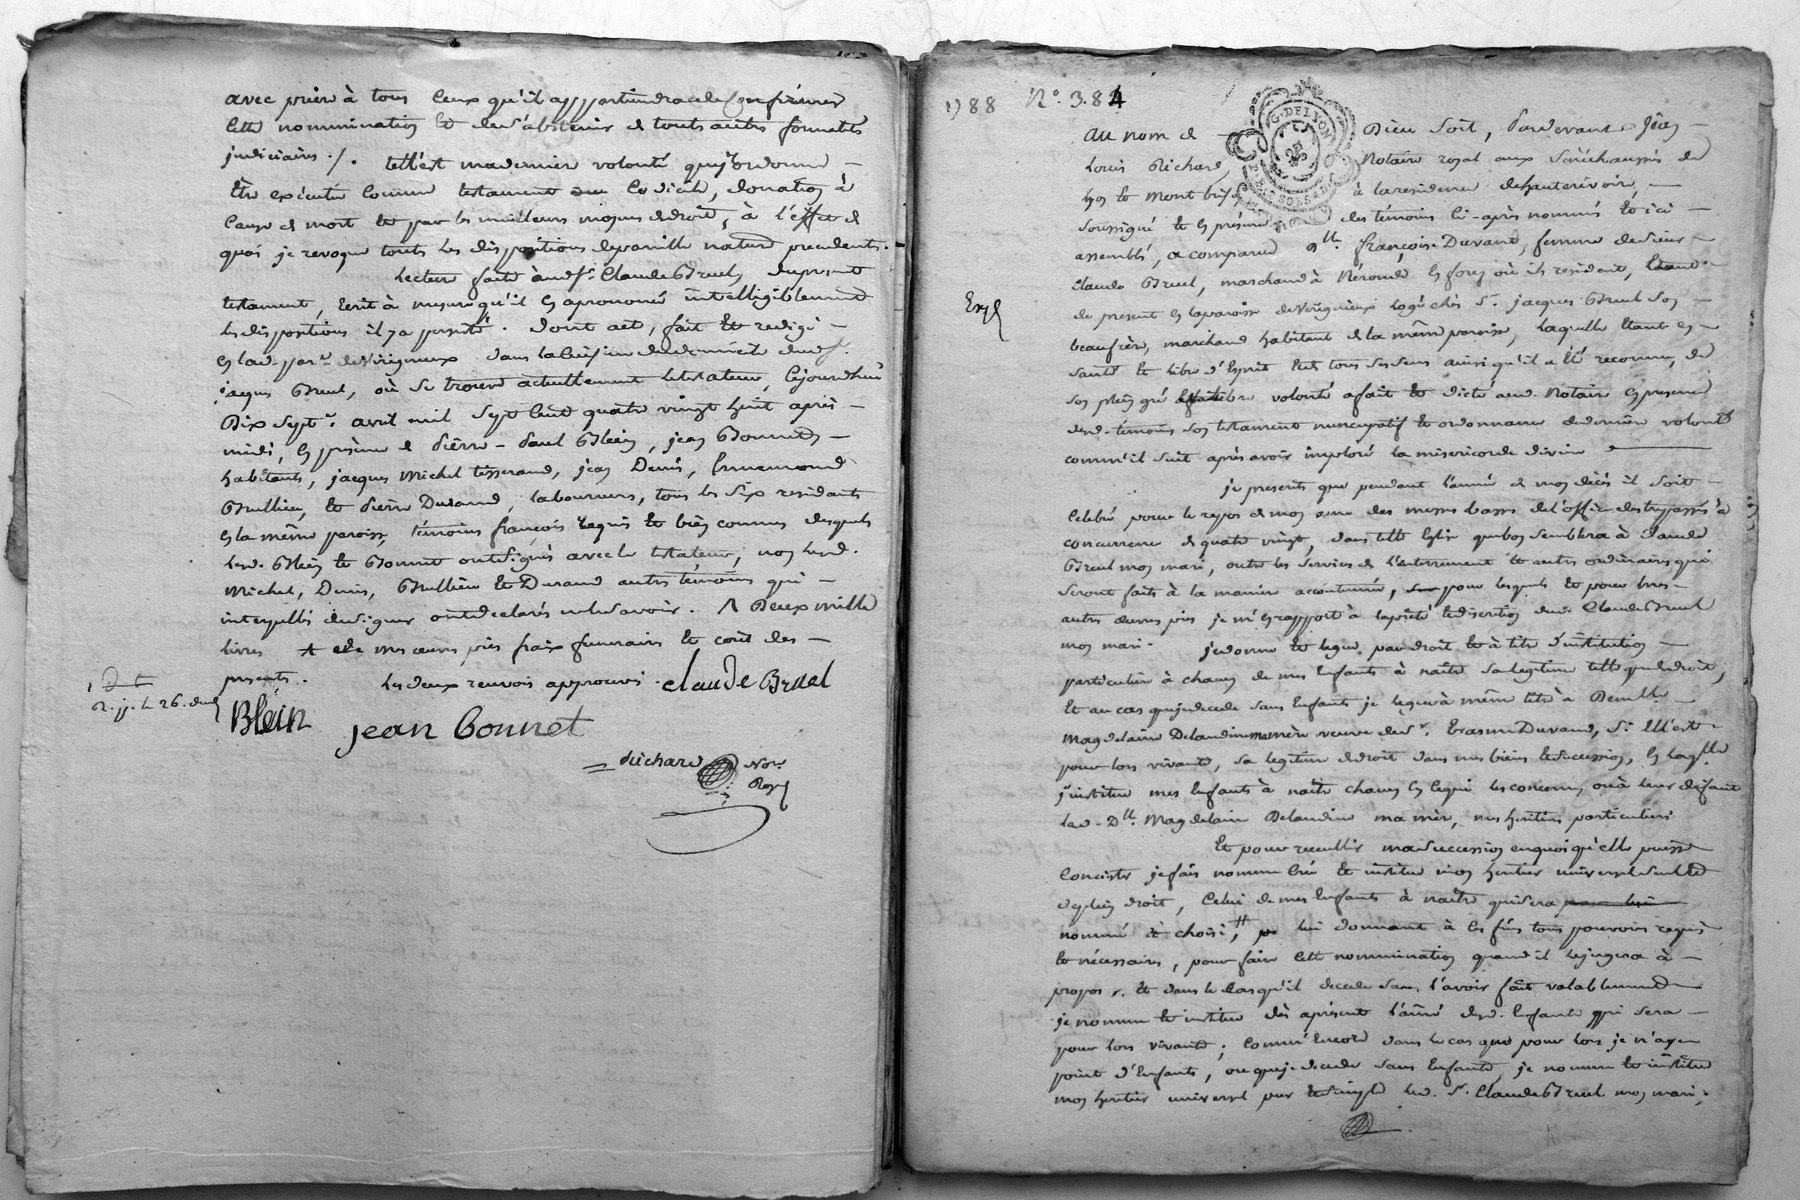 avec prière à tous ceux qu'il appartiendra de confirmer
cette nommination et de s'abstenir de touts autres formalités
judiciaires ./. tell'est ma dernière volonté que j'ordonne —
être exécutée comme testament ou codicile, donation à
cause de mort et par les meilleurs moyens de droit, à l'effet de
quoi je revoque touts les dispositions de pareille nature precedents.
Lecture faite aud. Sr. Claude Breul du present
testament, écrit à mesure qu'il en a prononcé intelligiblement
les dispositions il y a persisté. dont acte, fait et redigé —
en lad. parse. de Virigneux dans la cuisine du domicile dud. Sr.
jacques Breul, où se trouve actuellement le testateur, cejourdhui
Dix sept. avril mil sept cent quatre vingt huit après —
midi, en présence de Pierre-Paul Blein, jean Bonnet —
habitants, jacques Michel tisserand, jean Denis, Ennemond
Brullieu, et Pierre Durand, laboureurs, tous les six residants
en la même paroisse, témoins françois requis et bien connus desquels
lesd. Blein et Bonnet ont signés avec le testateur, non lesd.
Michel, Denis, Brullieu et Durand autres témoins qui —
interpellés de signer ont declarés ne le savoir. Λ Deux mille
livres de mes œuvres pies fraix funerairs et coût des —
presents. Les deux renvois approuvés. Claude Breul
R. p. le 26. dud
Blein jean bonnet
Richard Nore.
Royal
1788 No. 384
G. DE LYON
au nom de Dieu soit, Pardevant Jean
Louis Richard, Notaire royal aux Sénéchaussées de
Lyon et Montbrison à la residence de hauterivoir, —
soussigné et en présence des témoins ci-après nommés et ici —
assemblés, a comparu dlle. françoise Durand, femme de sieur
Claude Breul, marchand à Néronde en forez où ils resident, étant
Expé
de present en la paroisse de Virigneux logé chès Sr. jacques Breul son —
beaufrère, marchand habitant de la même paroisse, laquelle étant en —
santé et libre d'esprit et de tous ses sens ainsi qu'il a été reconnu, de
son plein gré et libre volonté a fait et dicté aud. Notaire en presence
desd. témoins son testament nuncupatif et ordonnance de dernière volonté
comm'il suit après avoir imploré la misericorde divine
je prescrits que pendant l'année de mon décès il soit —
celebré pour le repos de mon ame des messes basses de l'office des trepassés à
concurrence de quatre vingt, dans tell' Eglise que bon semblera à Claude
Breul mon mari, outre les services de l'enterrement et autres ordinaires qui
seront faits à la manière accoutumée, pour lesquels et pour mes —
autres œuvres pies je m'en rapporte à la pieté et discretion dud. Claude Breul
mon mari. je donne et legue par droit et à titre d'institution —
particulière à chacun de mes Enfants à naître sa legitime telle que de droit;
Et au cas que je decede sans Enfants je legue à même titre à Demlle. —
Magdelaine Delandine ma mère veuve de Sr. Erasme Durand, Si Ell'est
pour lors vivante, sa legitime de droit dans mes biens et succession, en laquelle
j'institue mes Enfants à naître chacun en ce qui les concerne, où à leur défaut
lad. Dlle. Magdelaine Delandine ma mère, mes héritiers particuliers
Et pour recueillir ma succession en quoi qu'elle puisse
Consister je fais nomme crée et institue mon héritier universel seul et
de plein droit, celui de mes Enfants à naître qui sera pour lui
nommé et choisi, # lui donnant à ces fins tous pouvoirs requis
et nécessaires, pour faire cette nommination quand il le jugera à —
propos. Et dans le cas qu'il decede sans l'avoir fait valablement —
je nomme et institue dès aprésent l'aîné desd. Enfants qui sera —
pour lors vivants; Comm'encore dans le cas que pour lors je n'aye
point d'Enfants, ou que je decede sans Enfants, je nomme et institue
mon héritier universel pur et simple led. Sr. Claude Breul mon mari;